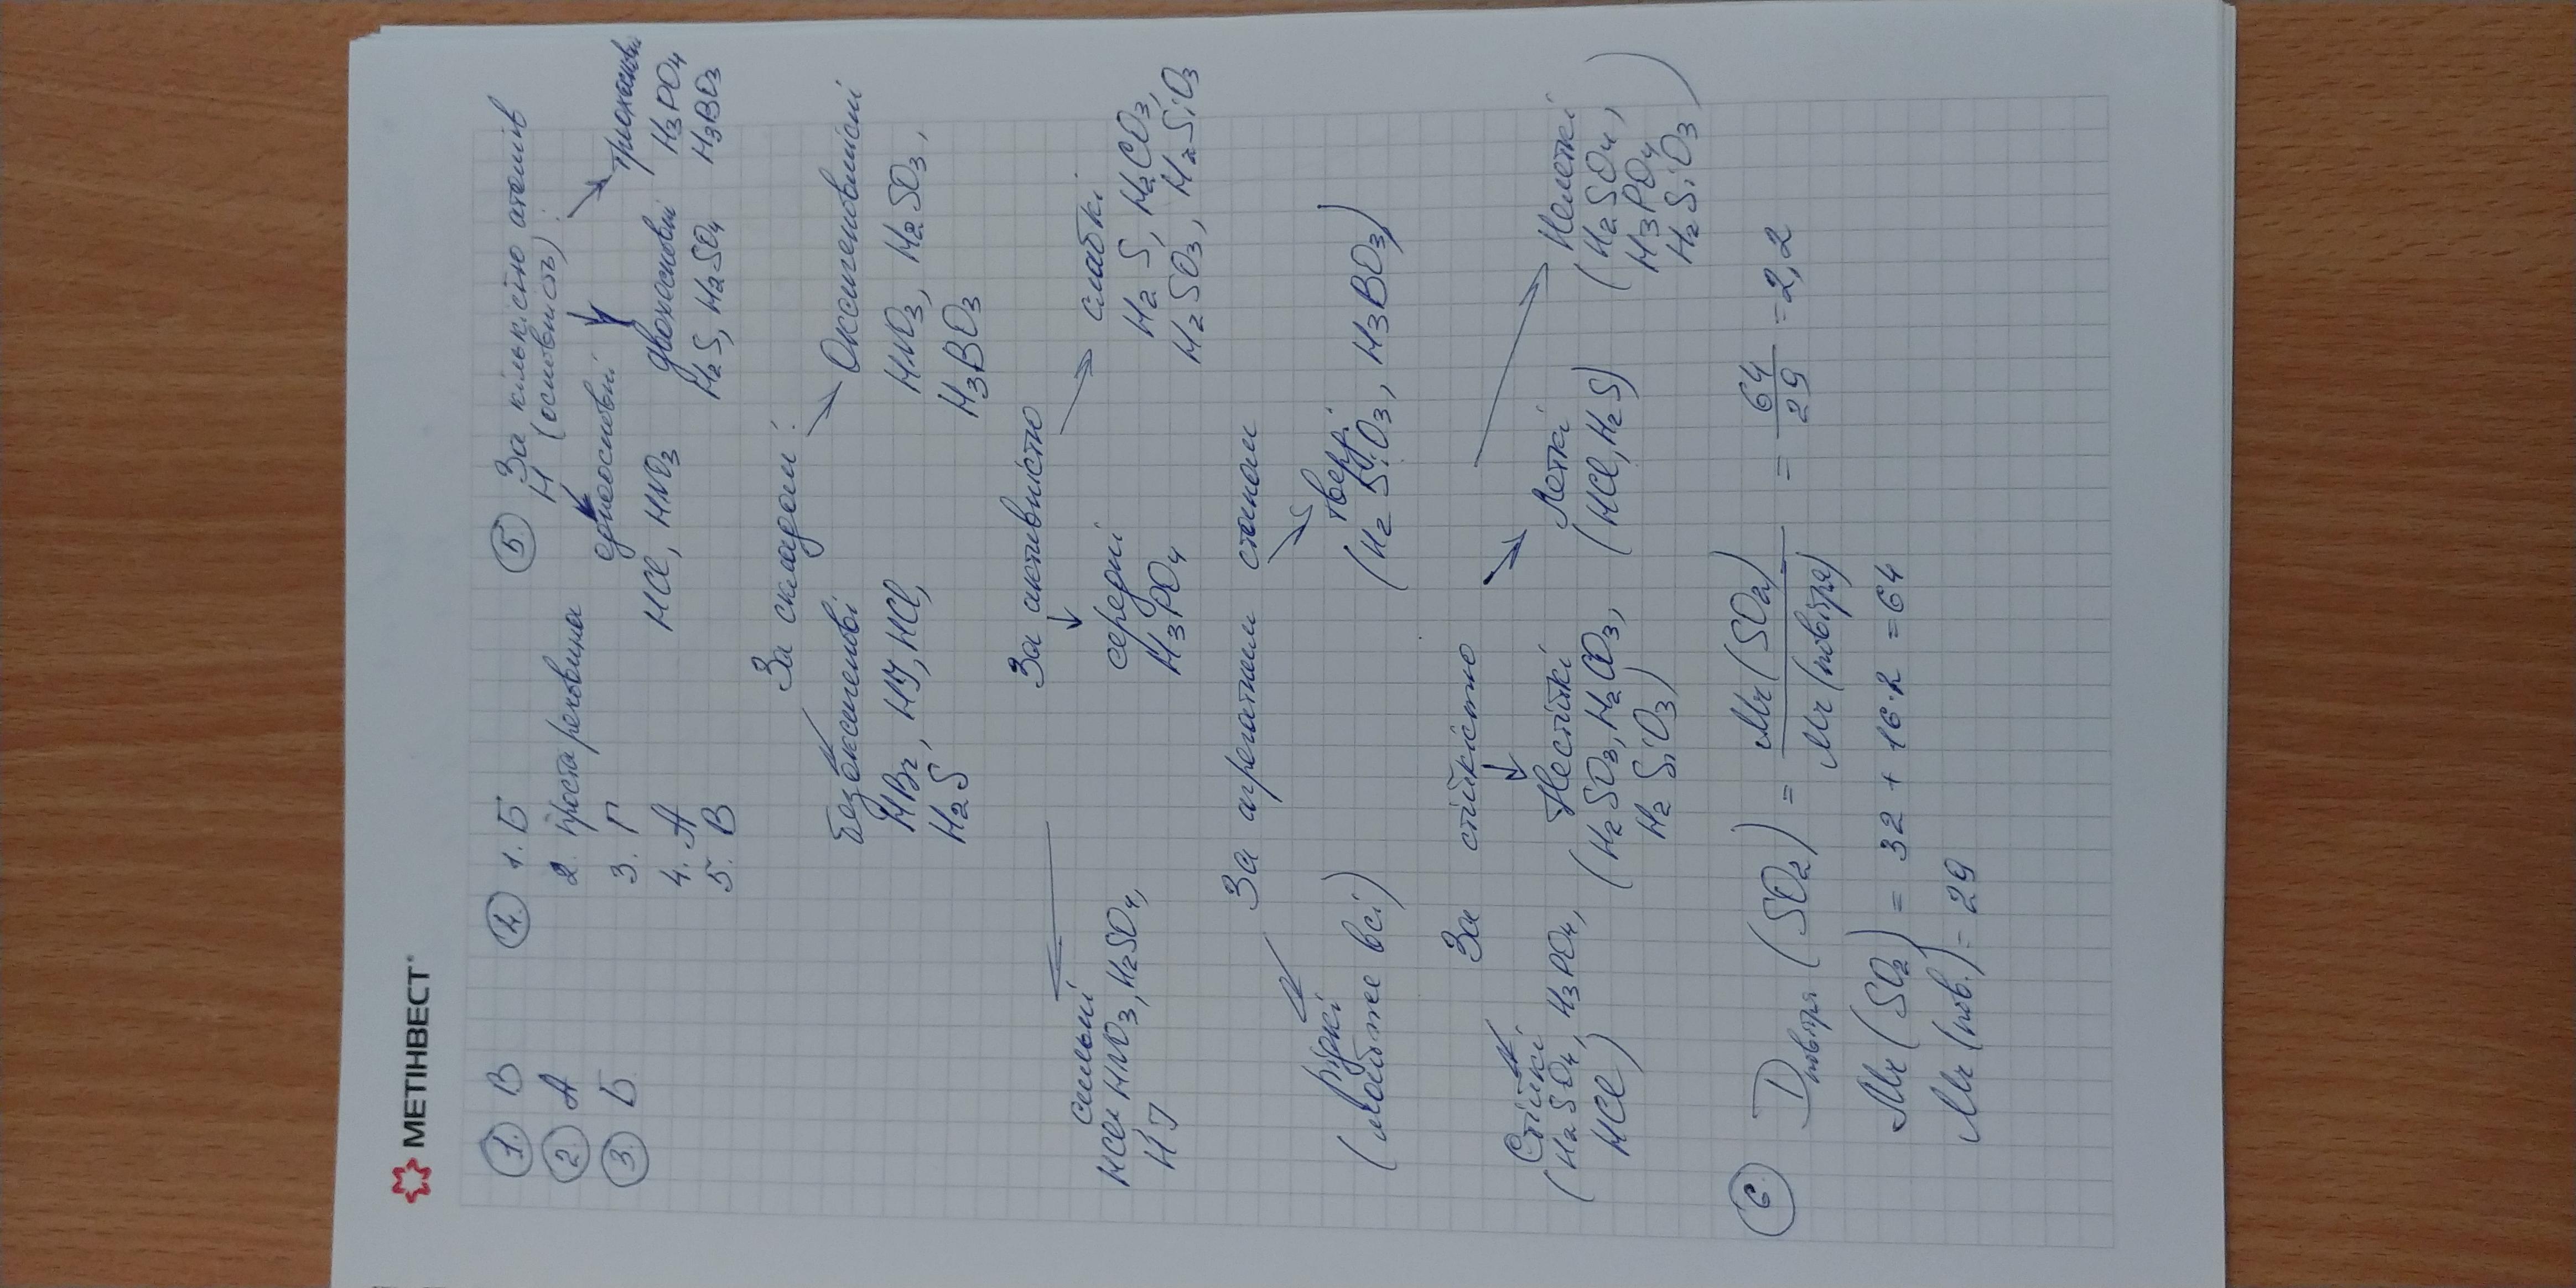 МЕТІНВЕСТ
1. В
2. А
3. Б
4. 1. Б
2. проста речовина
3. Г
4. А
5. В
5. За кількістю атомів
H (основність):
одноосновні
HCl, HNO3
двохосновні
H2S, H2SO4
трьохосновні
H3PO4
H3BO3
За складом:
Безоксигенові
HBr, HJ, HCl,
H2S
Оксигеновмісні
HNO3, H2SO3,
H3BO3
За активністю
сильні
HCl, HNO3, H2SO4,
HJ
середні
H3PO4
слабкі
H2S, H2CO3,
H2SO3, H2SiO3
За агрегатним станом
рідкі
(майже всі)
тверді
(H2SiO3, H3BO3)
За стійкістю
Стійкі
(H2SO4, H3PO4,
HCl)
Нестійкі
(H2SO3, H2CO3,
H2SiO3)
Леткі
(HCl, H2S)
Нелеткі
(H2SO4,
H3PO4
H2SiO3)
6. Dповітря (SO2) = Mr(SO2) / Mr(повітря) = 64 / 29 = 2,2
Mr(SO2) = 32 + 16·2 = 64
Mr(пов.) = 29